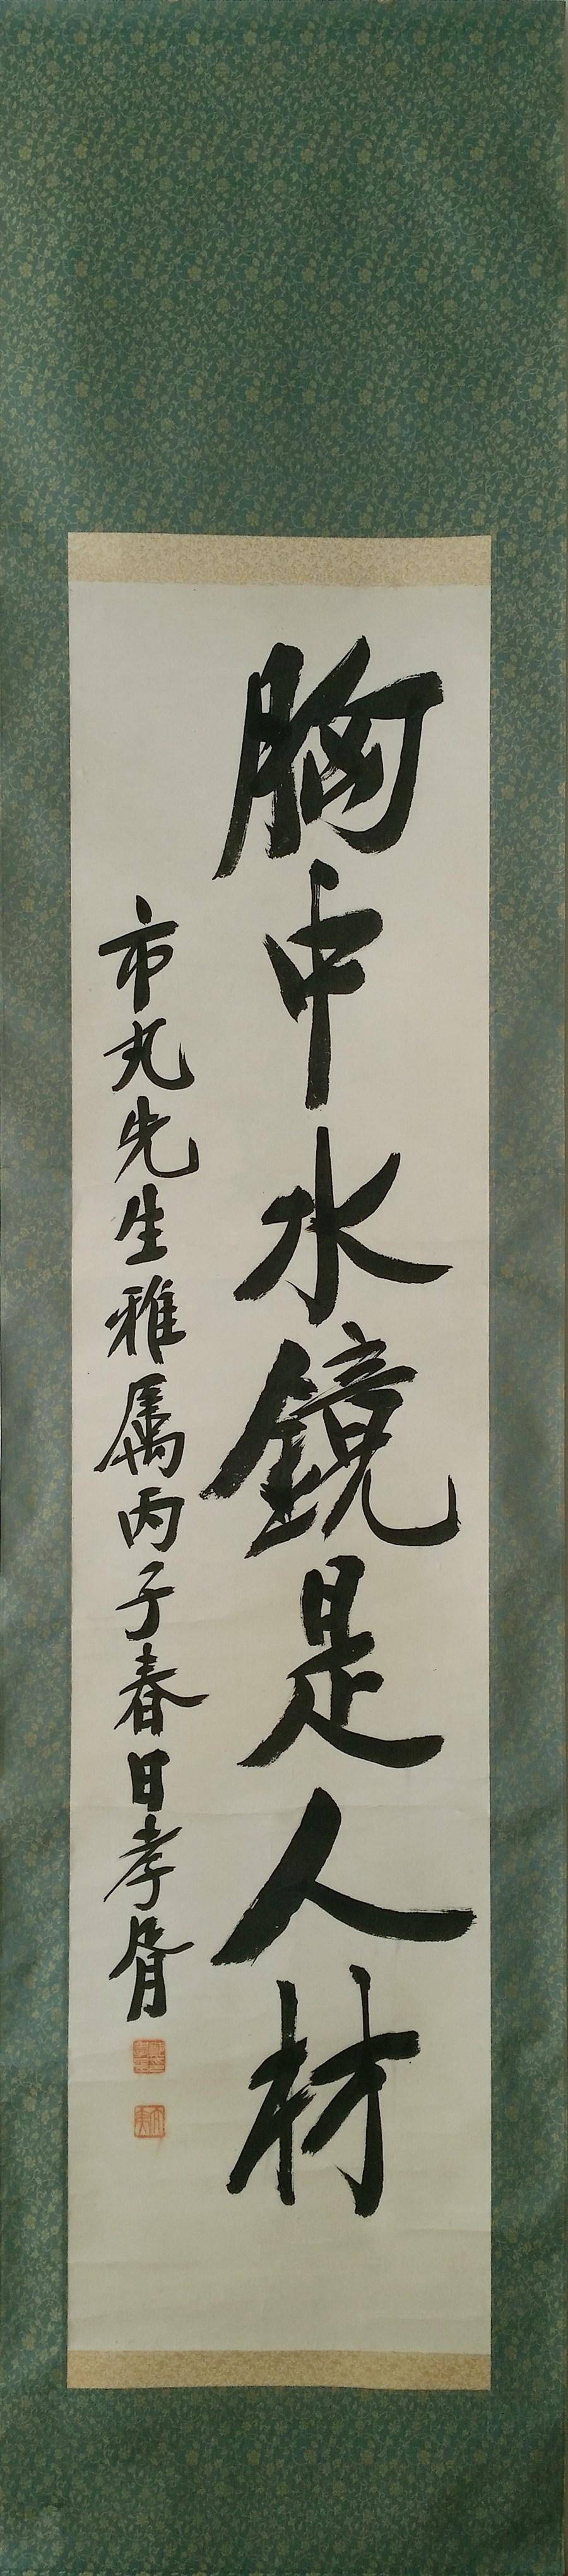 胸中水鏡是人材
市丸先生雅属丙子春日孝胥